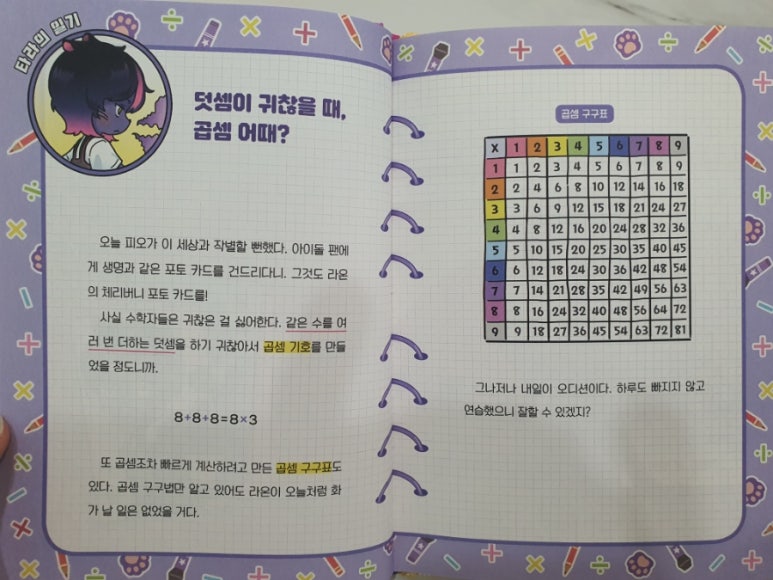 타라의 일기
덧셈이 귀찮을 때,
곱셈 어때?
오늘 피오가 이 세상과 작별할 뻔했다. 아이돌 팬에
게 생명과 같은 포토 카드를 건드리다니. 그것도 라온
의 체리버니 포토 카드를!
사실 수학자들은 귀찮은 걸 싫어한다. 같은 수를 여
러 번 더하는 덧셈을 하기 귀찮아서 곱셈 기호를 만들
었을 정도니까.
8+8+8=8×3
또 곱셈조차 빠르게 계산하려고 만든 곱셈 구구표도
있다. 곱셈 구구법만 알고 있어도 라온이 오늘처럼 화
가 날 일은 없었을 거다.
곱셈 구구표
X 1 2 3 4 5 6 7 8 9
1 1 2 3 4 5 6 7 8 9
2 2 4 6 8 10 12 14 16 18
3 3 6 9 12 15 18 21 24 27
4 4 8 12 16 20 24 28 32 36
5 5 10 15 20 25 30 35 40 45
6 6 12 18 24 30 36 42 48 54
7 7 14 21 28 35 42 49 56 63
8 8 16 24 32 40 48 56 64 72
9 9 18 27 36 45 54 63 72 81
그나저나 내일이 오디션이다. 하루도 빠지지 않고
연습했으니 잘할 수 있겠지?